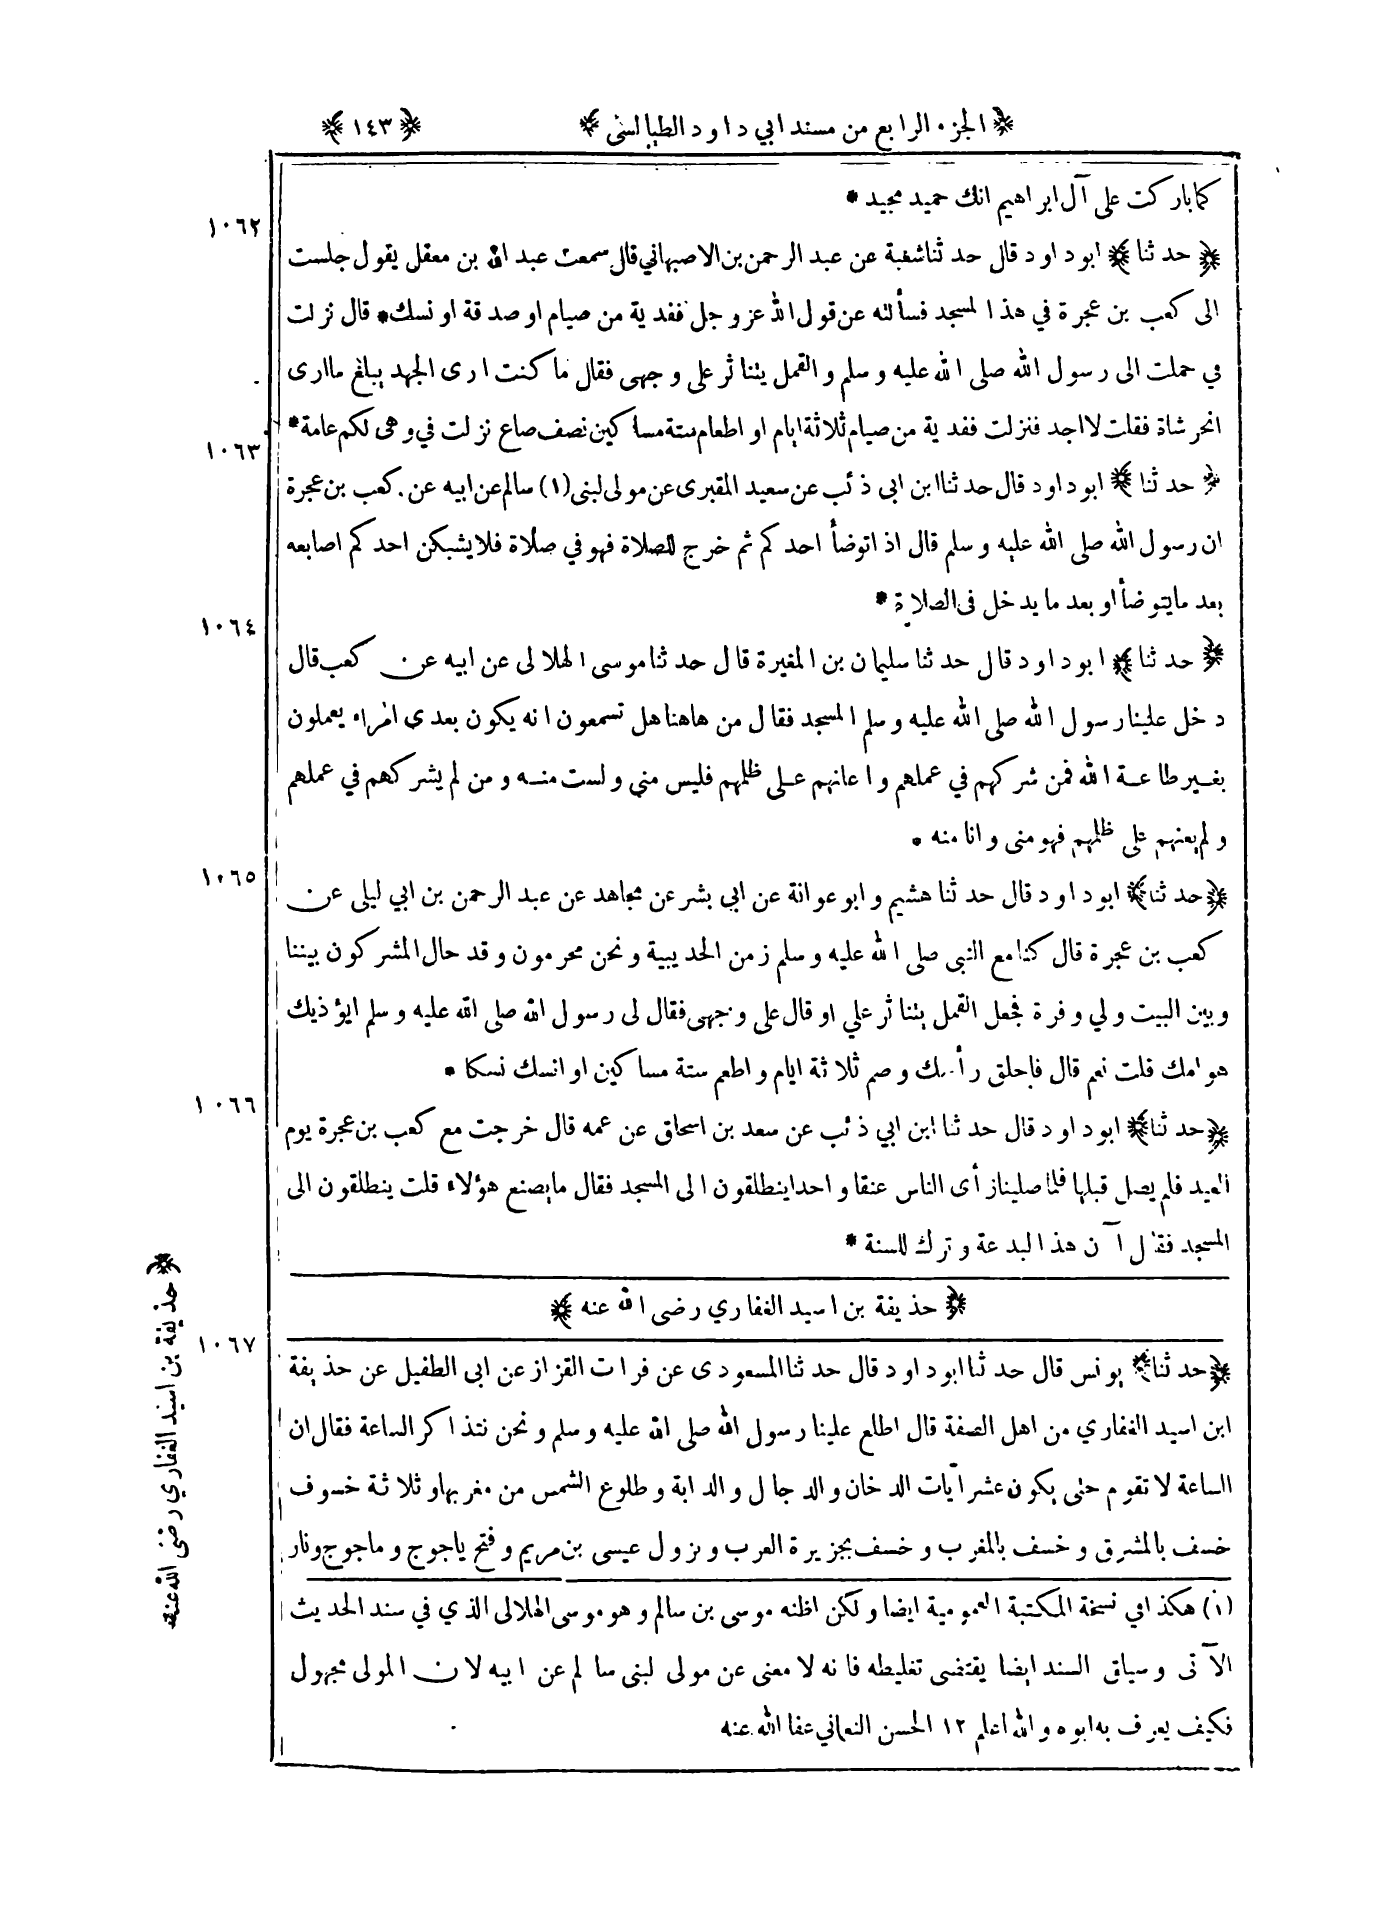 ﴿ الجزء الرابع من مسند ابي داود الطيالسى ﴾ ﴿ ١٤٣ ﴾
كما باركت على آل ابراهيم انك حميد مجيد *
١٠٦٢
﴿ حدثنا ﴾ ابو داود قال حدثنا شعبة عن عبد الرحمن بن الاصبهاني قال سمعت عبد الله بن معقل يقول جلست
الى كعب بن عجرة في هذا المسجد فسألته عن قول الله عز وجل ففدية من صيام او صدقة او نسك * قال نزلت
في حملت الى رسول الله صلى الله عليه وسلم والقمل يتناثر على وجهى فقال ما كنت ارى الجهد يبلغ ما ارى
انحر شاة فقلت لا اجد فنزلت ففدية من صيام ثلاثة ايام او اطعام ستة مساكين نصف صاع نزلت في وهى لكم عامة *
١٠٦٣
﴿ حدثنا ﴾ ابو داود قال حدثنا ابن ابى ذئب عن سعيد المقبرى عن مولى لبنى (١) سالم عن ابيه عن كعب بن عجرة
ان رسول الله صلى الله عليه وسلم قال اذا توضأ احدكم ثم خرج للصلاة فهو في صلاة فلا يشبكن احدكم اصابعه
بعد ما يتوضأ او بعد ما يدخل فى الصلاة *
١٠٦٤
﴿ حدثنا ﴾ ابو داود قال حدثنا سليمان بن المغيرة قال حدثنا موسى الهلالى عن ابيه عن كعب قال
دخل علينا رسول الله صلى الله عليه وسلم المسجد فقال من هاهنا هل تسمعون انه يكون بعدى امراء يعملون
بغير طاعة الله فمن شركهم في عملهم واعانهم على ظلمهم فليس مني ولست منه ومن لم يشركهم في عملهم
ولم يعنهم على ظلمهم فهو منى وانا منه *
١٠٦٥
﴿ حدثنا ﴾ ابو داود قال حدثنا هشيم وابو عوانة عن ابي بشر عن مجاهد عن عبد الرحمن بن ابي ليلى عن
كعب بن عجرة قال كنا مع النبى صلى الله عليه وسلم زمن الحديبية ونحن محرمون وقد حال المشركون بيننا
وبين البيت ولي وفرة فجعل القمل يتناثر علي او قال على وجهى فقال لى رسول الله صلى الله عليه وسلم ايؤذيك
هوامك قلت نعم قال فاحلق رأسك وصم ثلاثة ايام واطعم ستة مساكين او انسك نسكا *
١٠٦٦
﴿ حدثنا ﴾ ابو داود قال حدثنا ابن ابي ذئب عن سعد بن اسحاق عن عمه قال خرجت مع كعب بن عجرة يوم
العيد فلم يصل قبلها فلما صلينا رأى الناس عنقا واحدا ينطلقون الى المسجد فقال ما يصنع هؤلاء قلت ينطلقون الى
المسجد فقال آن هذا لبدعة وترك للسنة *
﴿ حذيفة بن اسيد الغفاري رضى الله عنه ﴾
﴿ حذيفة بن اسيد الغفاري رضى الله عنه
١٠٦٧
﴿ حدثنا ﴾ يونس قال حدثنا ابو داود قال حدثنا المسعودى عن فرات القزاز عن ابى الطفيل عن حذيفة
ابن اسيد الغفاري من اهل الصفة قال اطلع علينا رسول الله صلى الله عليه وسلم ونحن نتذاكر الساعة فقال ان
الساعة لا تقوم حتى يكون عشر آيات الدخان والدجال والدابة وطلوع الشمس من مغربها وثلاثة خسوف
خسف بالمشرق وخسف بالمغرب وخسف بجزيرة العرب ونزول عيسى بن مريم وفتح ياجوج وماجوج ونار
(١) هكذا في نسخة المكتبة العمومية ايضا ولكن اظنه موسى بن سالم وهو موسى الهلالى الذي في سند الحديث
الآتى وسياق السند ايضا يقتضى تغليطه فانه لا معنى عن مولى لبنى سالم عن ابيه لان المولى مجهول
فكيف يعرف به ابوه والله اعلم ١٢ الحسن النعماني عفا الله عنه